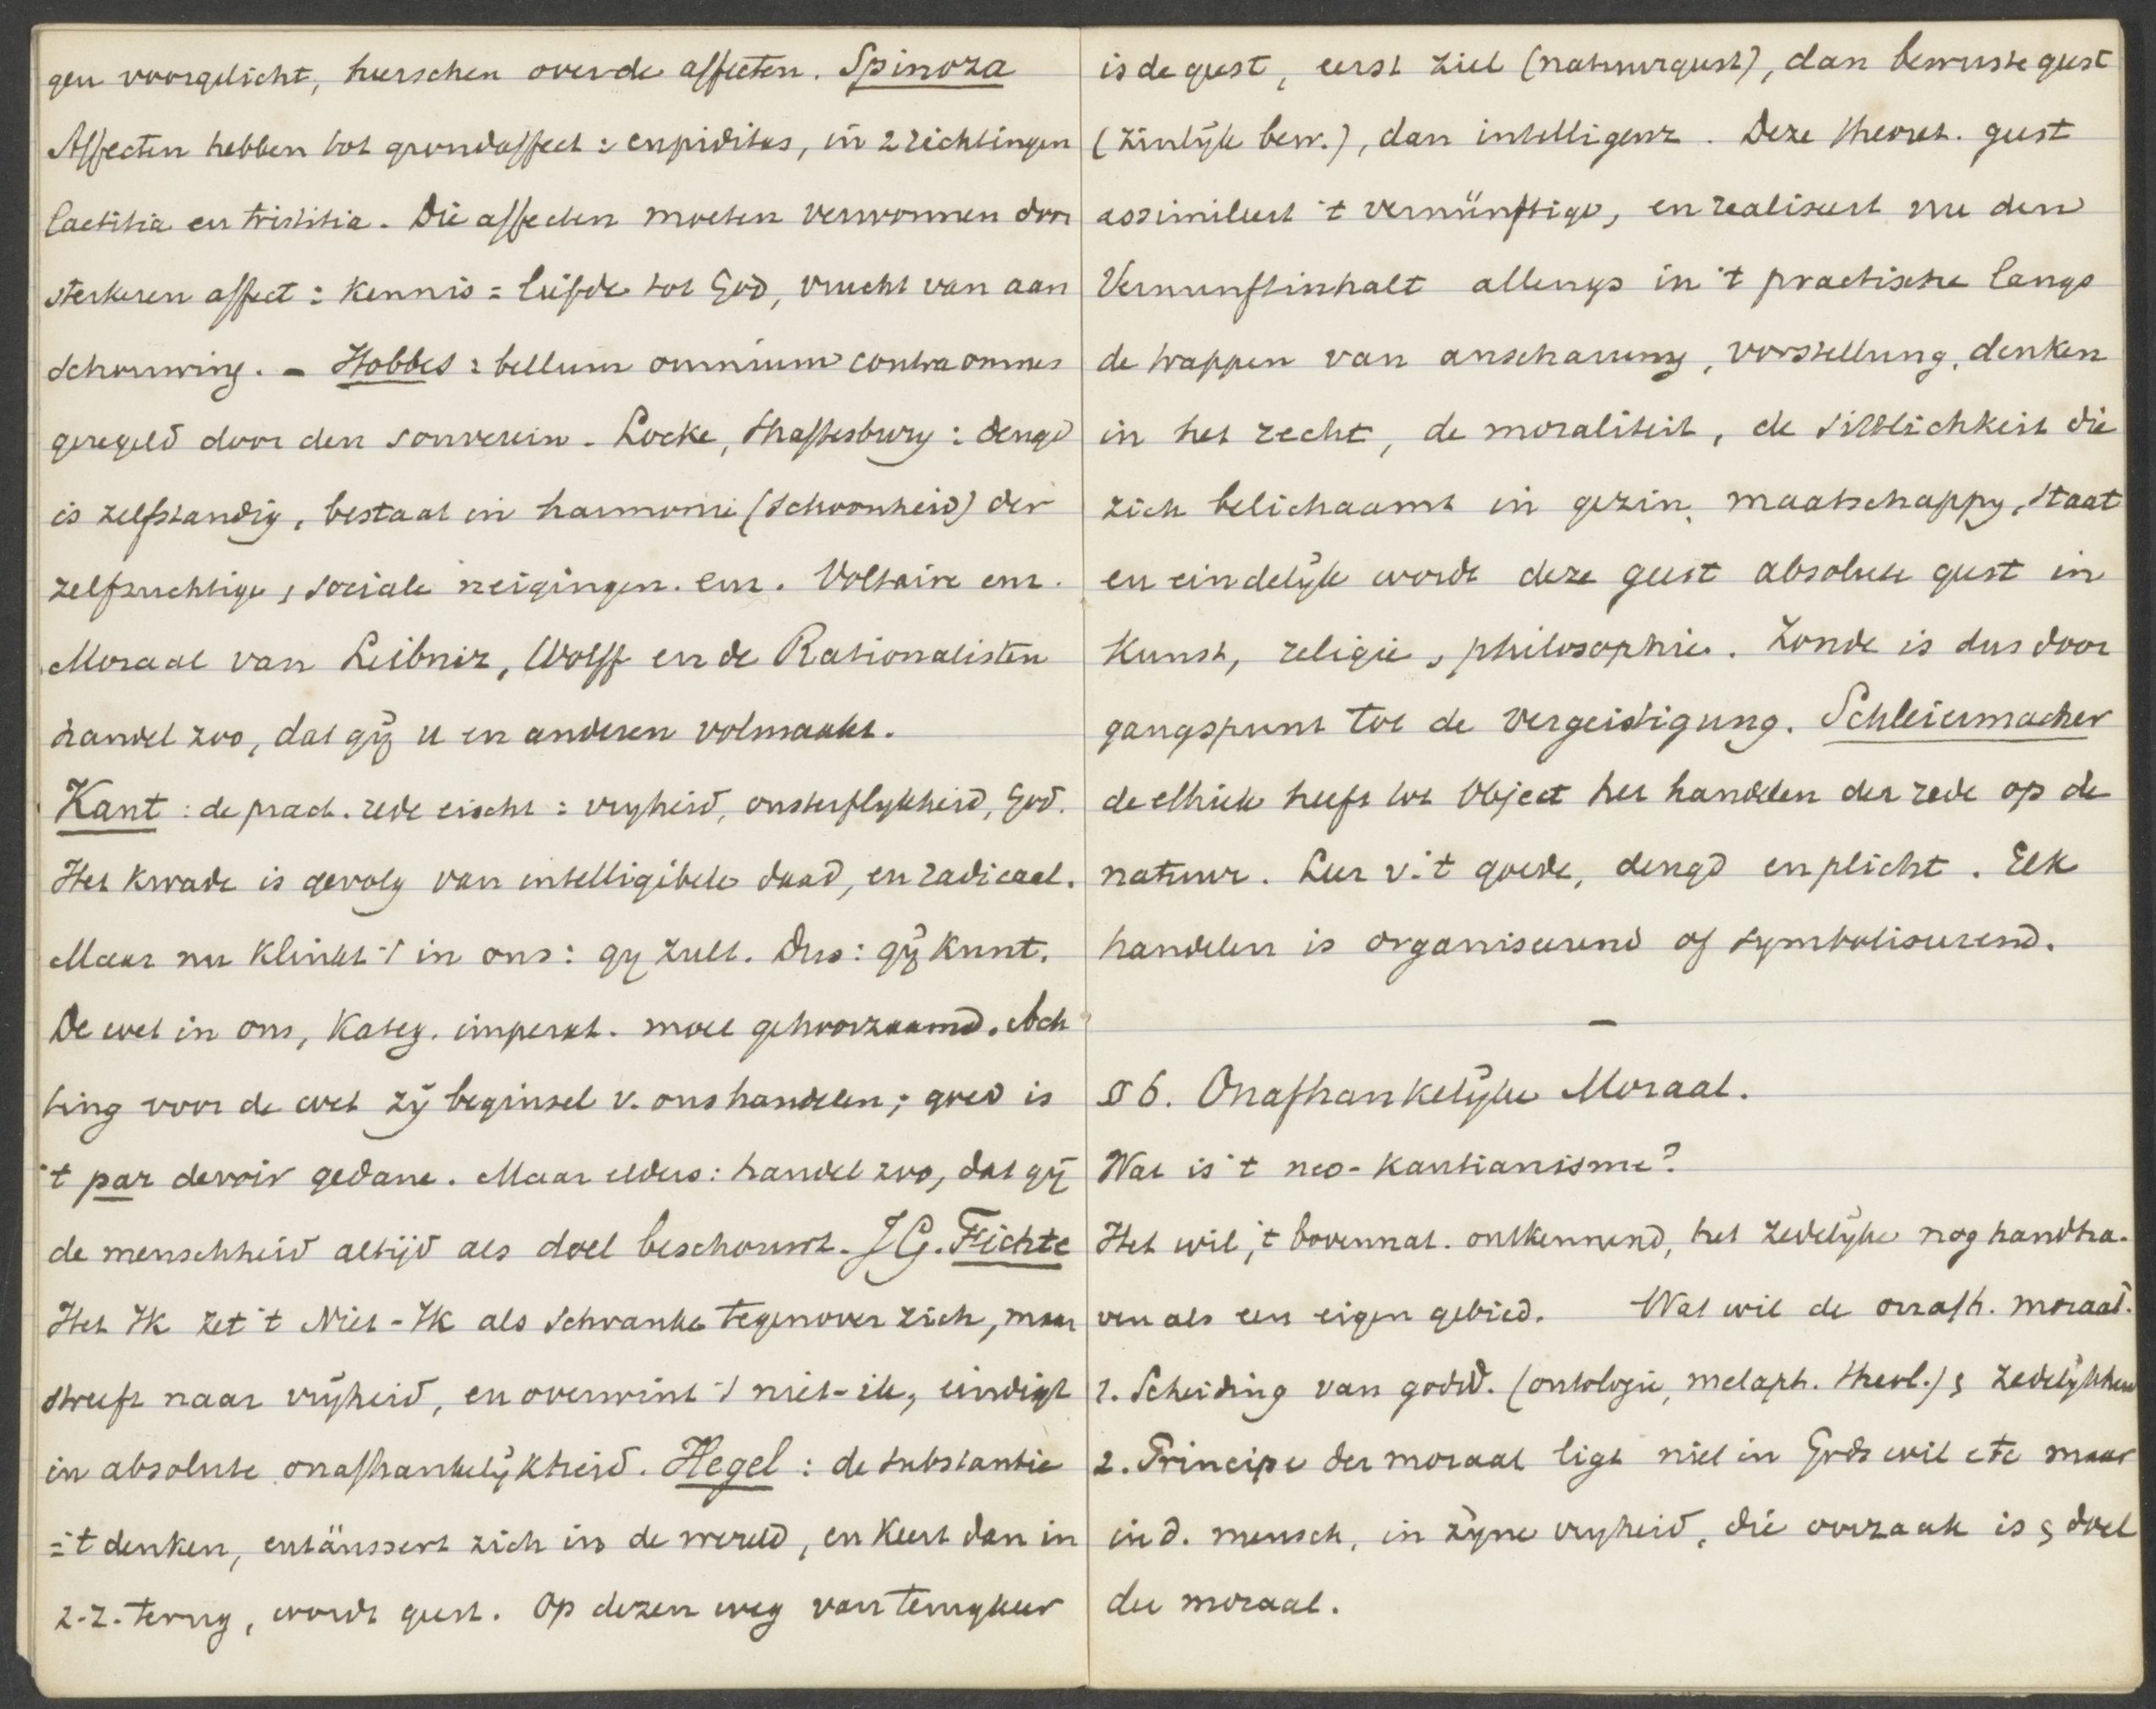 gen voorgelicht, heerschen over de affecten. Spinoza
Affecten hebben tot grondaffect: cupiditas, in 2 richtingen
laetitia en tristitia. Die affecten moeten verwonnen door
sterkeren affect: Kennis = liefde tot God, vrucht van aan
schouwing. - Hobbes: bellum omnium contra omnes
geregeld door den souverein. Locke, Shaftesbury: deugd
is zelfstandig, bestaat in harmonie (schoonheid) der
zelfzuchtige & sociale neigingen. enz. Voltaire enz.
Moraal van Leibniz, Wolff en de Rationalisten
handel zoo, dat gij u en anderen volmaakt.
Kant: de pract. rede eischt: vryheid, onsterflykheid, God.
Het kwade is gevolg van intelligibele daad, en radicaal.
Maar nu klinkt 't in ons: gy zult. Dus: gij kunt.
De wet in ons, Kateg. imperat. moet gehoorzaamd. Ach
ting voor de wet zij beginsel v. ons handelen; goed is
't par devoir gedane. Maar elders: handel zoo, dat gij
de menschheid altijd als doel beschouwt. J G. Fichte
Het Ik zet 't Niet-Ik als Schranke tegenover zich, maar
streeft naar vrijheid, en overwint 't niet-ik, eindigt
in absolute onafhankelijkheid. Hegel: de substantie
= 't denken, entäussert zich in de wereld, en keert dan in
z.z. terug, wordt geest. Op dezen weg van terugkeer
is de geest, eerst ziel (natuurgeest), dan bewuste geest
(zinlijk bew.), dan intelligenz. Deze theoret. geest
assimileert 't vernünftige, en realiseert nu den
Vernunftinhalt allengs in 't practische langs
de trappen van anschauung, vorstellung, denken
in het recht, de moraliteit, de sittlichkeit die
zich belichaamt in gezin, maatschappy, staat
en eindelijk wordt deze geest absolute geest in
Kunst, religie & philosophie. Zonde is dus door
gangspunt tot de vergeistigung. Schleiermacher
de ethiek heeft tot Object het handelen der rede op de
natuur. Leer v. 't goede, deugd en plicht. Elk
handelen is organiseerend of symboliseerend.
—
§ 6. Onafhankelijke Moraal.
Wat is 't neo-kantianisme?
Het wil, 't bovennat. ontkennend, het zedelijke nog handha-
ven als een eigen gebied. Wat wil de onafh. moraal.
1. Scheiding van godsd. (ontologie, metaph. theol.) & zedelijkheid
2. Principe der moraal ligt niet in Gods wil etc maar
in d. mensch, in zijne vryheid, die oorzaak is & doel
der moraal.